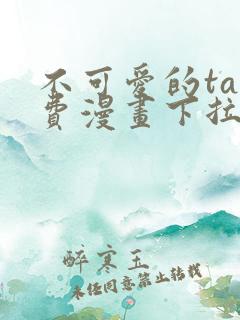 不可愛的ta
費漫畫下拉
醉寒玉
未经同意禁止转载